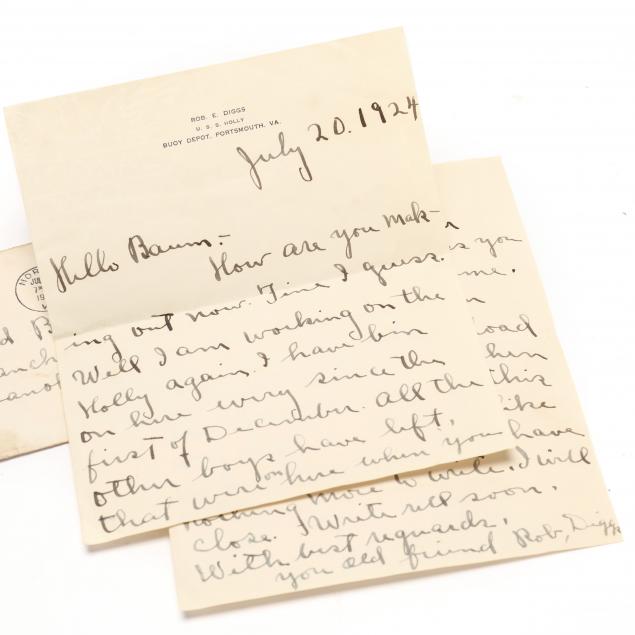 ROB. E. DIGGS
U. S. S. HOLLY
BUOY DEPOT, PORTSMOUTH, VA.
July 20. 1924
Hello Baum:-
How are you mak-
ing out now. Fine I guess.
Well I am working on the
Holly again. I have bin
on here every since the
first of December. all the
other boys have left,
that were on here when you
s you
me.
oad
hen
this
like
have
nothing more to write. I will
close. Write rell soon.
With best reguards,
you old friend Rob, Diggs
NOR
JUL
19
d B
anch